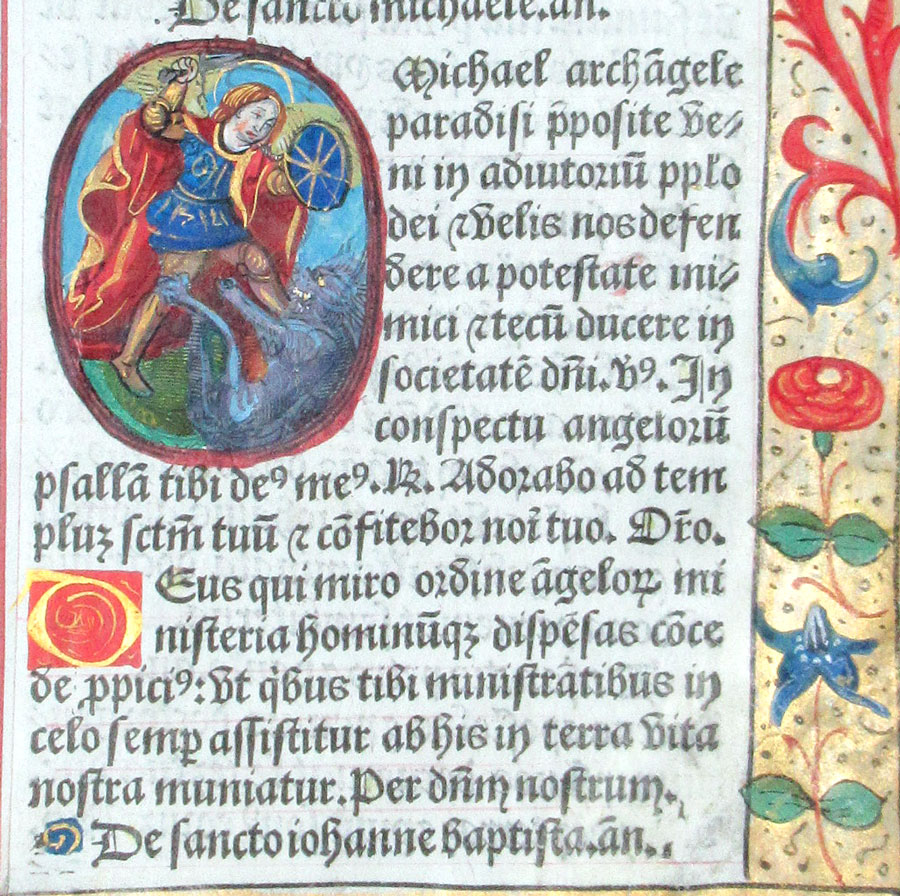 De sancto michaele.an.
Michael archāgele
paradisi p̄posite ve⸗
ni in adiutoriū pplo
dei ⁊ velis nos defen
dere a potestate ini⸗
mici ⁊ tecū ducere in
societatē dn̄i. Vꝰ. In
conspectu angelorū
psallā tibi deꝰ meꝰ. R̷. Adorabo ad tem
pluꝫ sctm̄ tuū ⁊ cōfitebor noī tuo. Or̄o.
DEus qui miro ordine āgeloꝝ mi
nisteria hominūqꝫ dispēsas cōce
de ꝓpiciꝰ: vt q̇bus tibi ministrātibus in
celo semꝑ assistitur ab his in terra vita
nostra muniatur. Per dn̄m nostrum.
De sancto iohanne baptista.an̄.